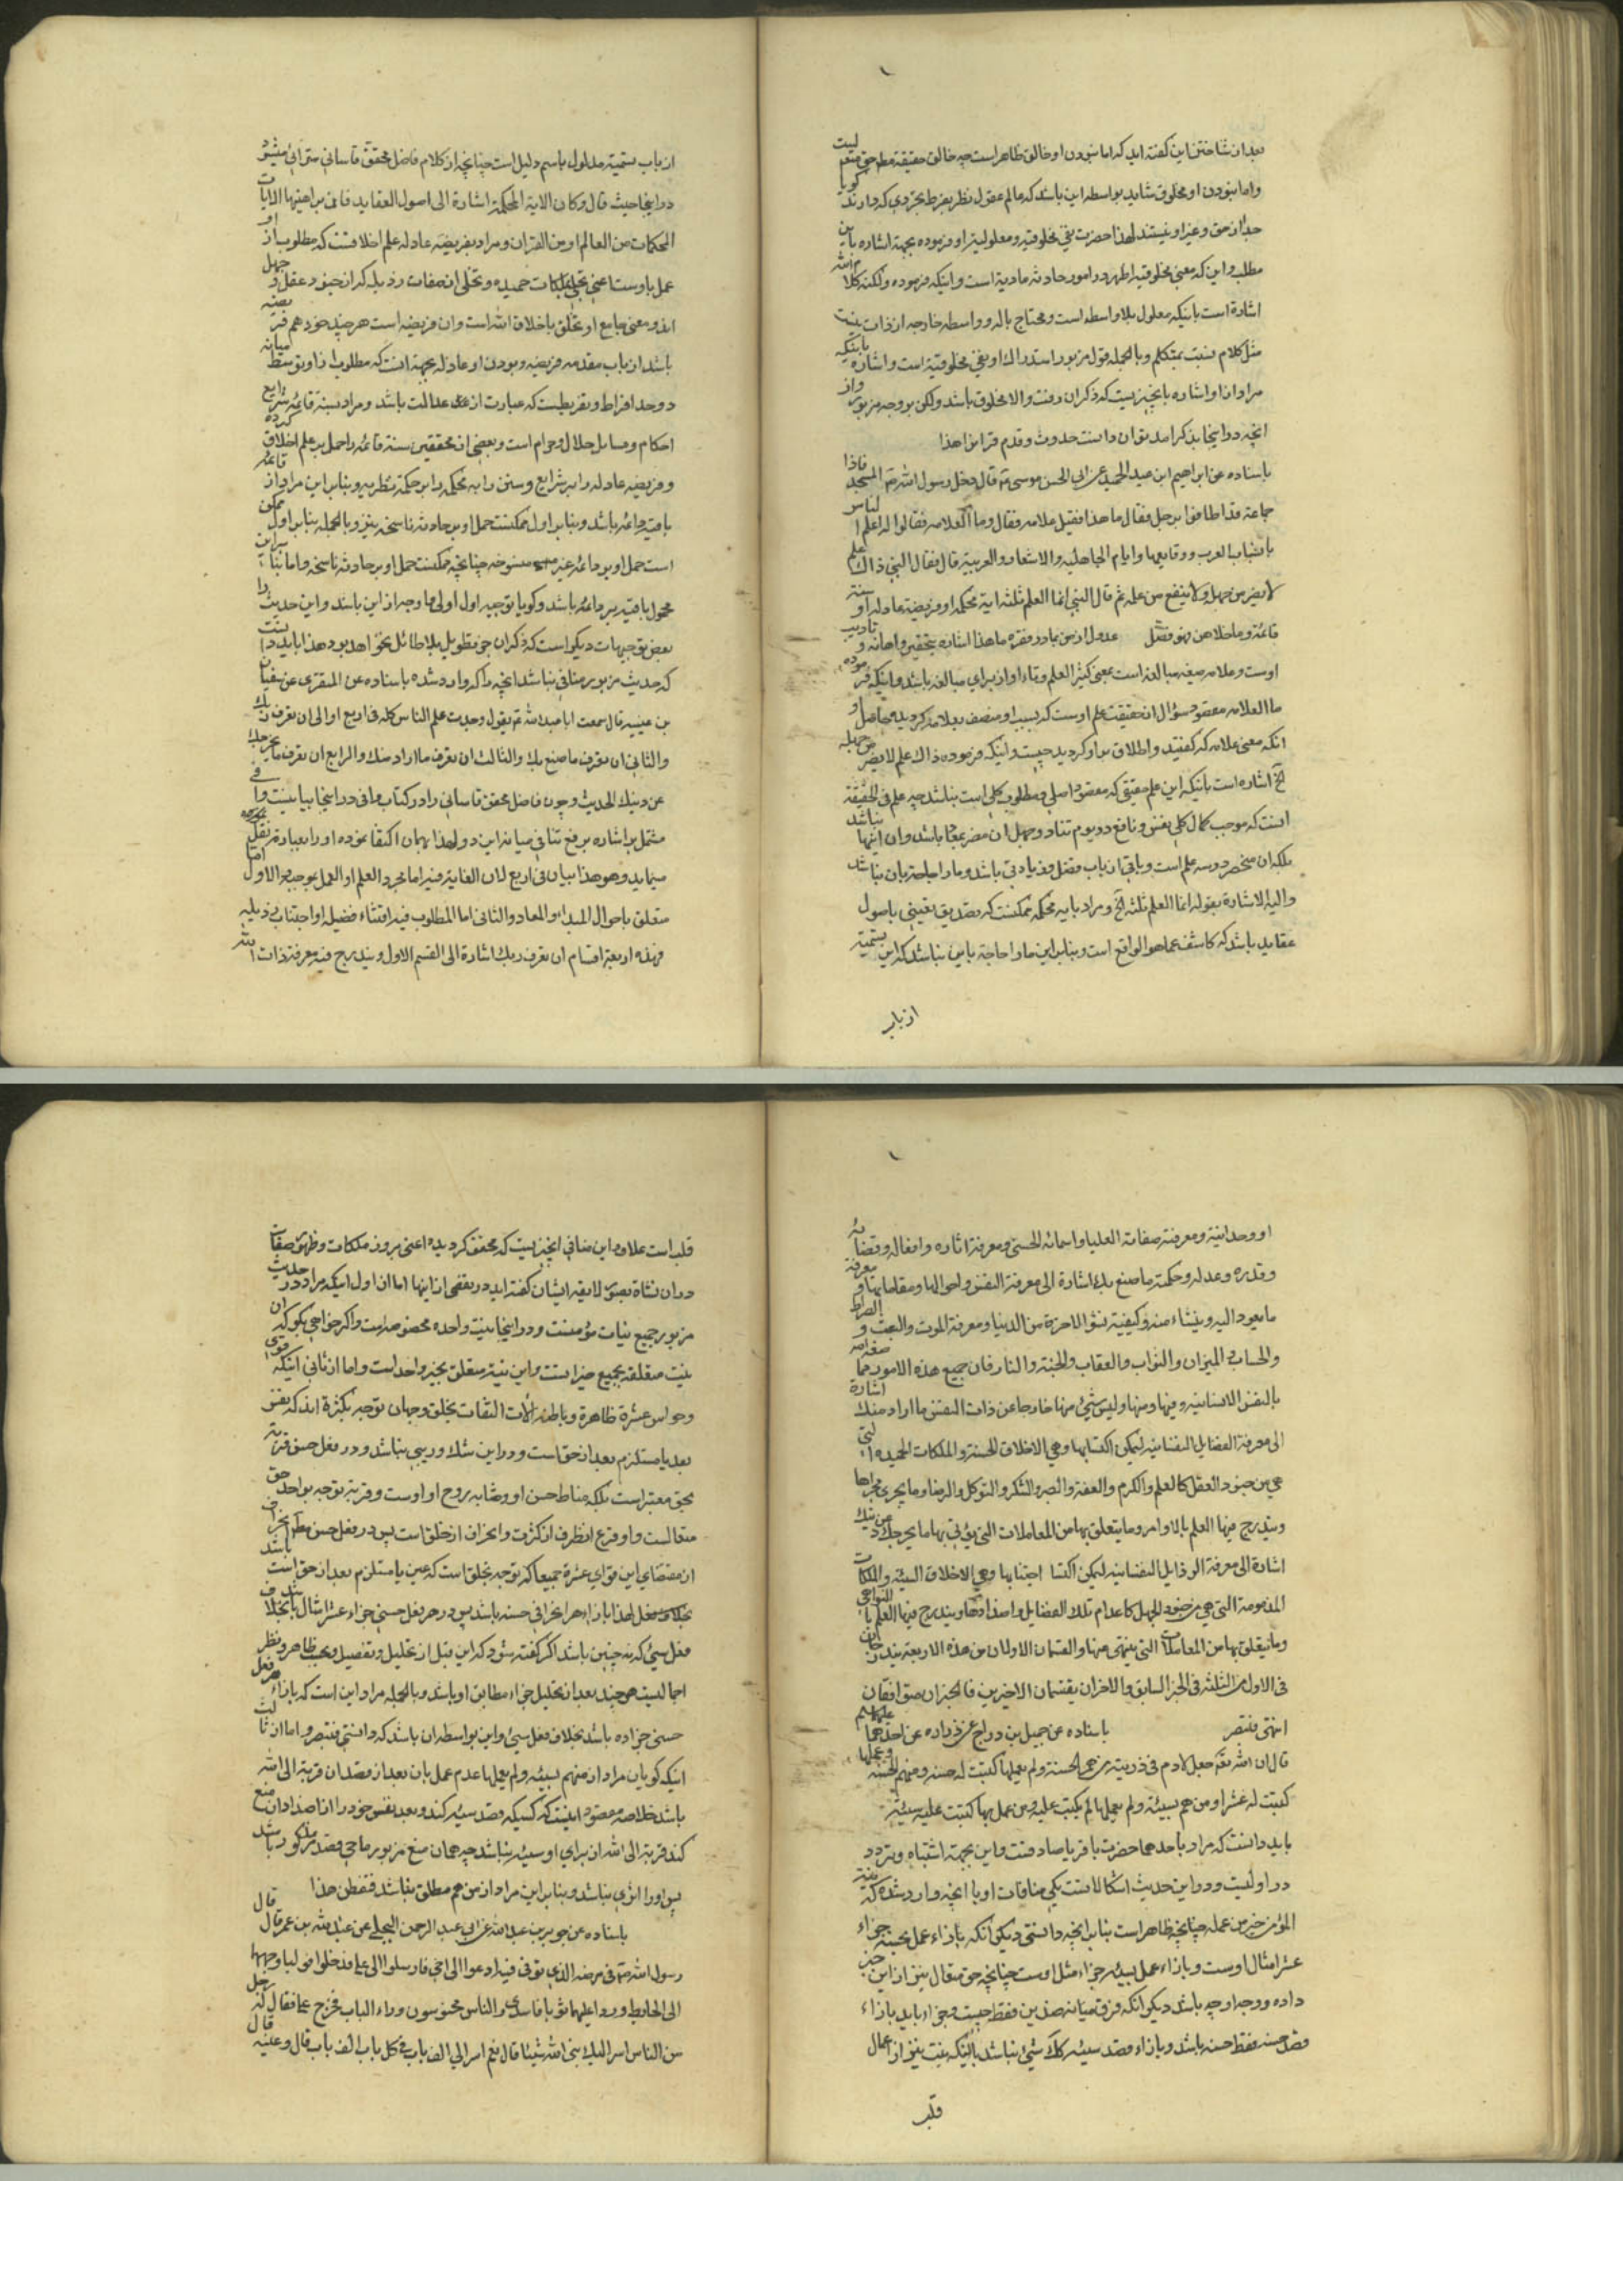 بعد از شناختن این گفته اید که اما نبودن او خالق ظاهر است چه خالق حقیقة مطلق حق متعم لیست
و اما نبودن او مخلوق شاید بواسطه این باشد که عالم عقول نظر بفرط تجردی که دارند گویا
جدا از حق و غیر او نیستند لهذا حضرت نفی مخلوقیة و معلولیة او فرموده بجهة اشاره باین
مطلب و این که معنی مخلوقیة اظهر در امور حادثه مادیة است و اینکه فرموده ولکنه کلام الله
اشارة است باینکه معلول بلا واسطه است و محتاج باله و واسطه خارجه از ذات نیست
مثل کلام بنسبت بمتکلم و بالجمله قول مزبور استدراک او نفی مخلوقیة است و اشاره باینکه
مراد از او اشاره بانچیزیست که ذکر ان رفت والا مخلوق باشد ولکن بر وجه مزبور و از
انچه در اینجا بذکر امد توان دانست حدوث و قدم قران را هذا
باسناده عن ابراهیم ابن عبد الحمید عن ابی الحسن موسی ع قال دخل رسول الله ص المسجد فاذا
جماعة قد اطافوا برجل فقال ما هذا فقیل علامه فقال و ما العلامه فقالوا له اعلم الناس
بانساب العرب و وقایعها و ایام الجاهلیه والاشعار والعربیة قال فقال النبی ذاک علم
لا یضر من جهله ولا ینفع من علمه ثم قال النبی انما العلم ثلثه ایة محکمه او فریضة عادله او سنة
قائمة و ما خلاهن فهو فضل عدول از من بما در فقره ما هذا اشاره بتحقیر و اهانه و تادیب
اوست و علامه صیغه مبالغه است بمعنی کثیر العلم و تاء او از برای مبالغه باشد و اینکه فرموده
ما العلامه مقصود سؤال از حقیقت علم اوست که بسبب او متصف بعلامه کردید و حاصل
انکه معنی علامه که گفتید و اطلاق بر او کردید چیست و اینکه فرموده ذاک علم لا یضر من جهله
الخ اشاره است باینکه این علم حقیقی که مقصود اصلی و مطلوب کلی است نباشد چه علم فی الحقیقة
انست که موجب کمال کلی نفس و نافع در یوم تناد و جهل ان مضر بمعاد باشد و ان اینها نباشد
بلکه ان منحصر در سه علم است و باقی از باب فضل و زیادتی باشد و ما را حاجة بان نباشد
والیه الاشارة بقوله انما العلم ثلثه الخ و مراد بایه محکمه ممکنست که تصدیق یقینی باصول
عقاید باشد که کاشف عما هو الواقع است و بنابراین ما را حاجة باین نباشد که این تسمیة
از باب
از باب تسمیة مدلول باسم دلیل است چنانچه از کلام فاضل محقق قاسانی مترائی میشود
در اینجا حیث قال و کان الایة المحکمة اشارة الی اصول العقاید فان براهینها الایات
المحکمات من العالم او من القران و مراد بفریضه عادله علم اخلاقست که مطلوب از او
عمل باوست اعنی تحلی بملکات حمیده و تخلی از صفات رذیله که از جنود عقل و جهل
اند و معنی جامع او تخلق باخلاق الله است و ان فریضه است هر چند خود هم فریضه
باشد از باب مقدمه فریضه و بودن او عادله بجهة انست که مطلوب از او توسط میانه
دو حد افراط و تفریطیست که عبارت از عدالت باشد و مراد بسنة قائمه شرایع
احکام و مسایل حلال و حرام است و بعضی از محققین سنة قائمه را حمل بر علم اخلاق کرده
و فریضه عادله را بر شرایع و سنن را به محکمه را بر حکمة نظریه و بنابراین مراد از قائمه
باقیه دائمه باشد و بنابر اول ممکنست حمل او بر حادثه ناسخه نیز و بالجمله بنابر اول ممکن
است حمل او بر دائمه غیر منسوخه چنانچه ممکنست حمل او بر حادثه ناسخه و اما بنابراین
محمول باقیه بر دائمه باشد و گویا توجیه اول اولی و اوجه از این باشد و این حدیث را
بعض توجیهات دیگر است که ذکر ان جز تطویل بلا طائل نخواهد بود هذا باید دانست
که حدیث مزبور منافی نباشد انچه را که وارد شده باسناده عن المنقری عن سفیان
بن عیینه قال سمعت ابا عبد الله ع یقول وجدت علم الناس کله فی اربع اولی ان تعرف ربک
والثانی ان تعرف ما صنع بک والثالث ان تعرف ما اراد منک والرابع ان تعرف ما یخرجک
عن دینک الحدیث و چون فاضل محقق قاسانی را در کتاب وافی در اینجا بیانیست وافی
مشتمل بر اشاره برفع تنافی میانه این دو لهذا بهمان اکتفا نموده او را بعبارته نقل
مینماید و هو هذا بیان فی اربع لان الغایة فیه اما مجرد العلم او العمل بموجبه والاول اما
متعلق باحوال المبداء والمعاد والثانی اما المطلوب فیه اقتناء فضیله او اجتناب رذیله
فهذه اربعة اقسام ان تعرف ربک اشارة الی القسم الاول و یندرج فیه معرفة ذات الله
او وحدانیته و معرفة صفاته العلیا و اسمائه الحسنی و معرفة اثاره و افعاله و قضائه
و قدره و عدله و حکمته ما صنع بک اشارة الی معرفة النفس و احوالها و مقاماتها و معرفة
ما یعود الیه و ینشاء منه و کیفیة نشؤ الاخرة من الدنیا و معرفة الموت والبعث والصراط
والحساب والمیزان والثواب والعقاب والجنة والنار فان جمیع هذه الامور مما صنعه الله
بالنفس الانسانیه و فیها و منها ولیس شیء منها خارجا عن ذات النفس ما اراد منک اشارة
الی معرفة الفضایل النفسانیه لیمکن اکتسابها و هی الاخلاق الحسنة والملکات الحمیده التی
هی من جنود العقل کالعلم والکرم والعفة والصبر والشکر والتوکل والرضا و ما یجری مجراها
و یندرج فیها العلم بالاوامر و ما یتعلق بها من المعاملات التی یؤتی بها ما یخرجک عن دینک
اشارة الی معرفة الرذایل النفسانیه لیمکن اجتنابها و هی الاخلاق السیئه والملکات
المذمومة التی هی من جنود الجهل کاعدام تلک الفضایل و اضدادها و یندرج فیها العلم بالنواهی
و ما یتعلق بها من المعاملات التی ینتهی عنها والقسمان الاولان من هذه الاربعة یندرجان
فی الاول من الثلثه فی الخبر السابق والاخران بقسمان الاخرین فالخبران متوافقان
انتهی فتبصر باسناده عن جمیل بن دراج عن زراره عن احدهما علیهما السلم
قال ان الله تعم جعل لادم فی ذریته من هم بحسنة ولم یعملها کتبت له حسنه و من هم بحسنه و عملها
کتبت له عشرا و من هم بسیئة ولم یعملها لم یکتب علیه و من عمل بها کتبت علیه سیئة
باید دانست که مراد باحدهما حضرت باقر یا صادقست و این بجهة اشتباه و تردد
در اولیت و در این حدیث اشکالاتست یکی منافات او با انچه وارد شده که نیة
المؤمن خیر من عمله چنانچه ظاهر است بنابر انچه دانستی دیگر انکه بازاء عمل حسنه جزاء
عشر امثال اوست و بازاء عمل بسیئه جزاء مثل اوست چنانچه حق متعال نیز از این خبر
داده و وجه او چه باشد دیگر انکه فرق میانه قصدین فقط چیست و چرا باید بازاء
قصد حسنه فقط حسنه باشد و بازاء قصد سیئه شیئ نباشد با انکه نیت نیز از اعمال
قلب
قلب است علاوه این منافی انچیزیست که محقق کردیده اعنی بروز ملکات و ظهور صفات
در ان نشاة بصور لایقه ایشان گفته اید در تفصی از اینها اما از اول اینکه مراد در حدیث
مزبور جمیع نیات مؤمنست و در اینجا نیت واحده مخصوصه است و اگر خواهی بگو که ان
نیت متعلقه بجمیع خیراتست و این نیة متعلق بخیر واحد است و اما از ثانی اینکه قوی
و حواس عشرة ظاهرة و باطنه الات التفات بخلق و جهان توجه بکثرة اند که نفس
بعد یا مستلزم بعد از حق است و در این شک و ریبی نباشد و در فعل حسن قربة
بحق معتبر است بلکه مناط حسن او و مثابه روح او اوست و قربة توجه بواحد حق
متعالست و او فرع انظراف از کثرت و انحراف از خلق است پس در فعل حسن انحراف
از مقتضای این قوای عشرة جمیعا که توجه بخلق است که عین یا مستلزم بعد از حق است باشد
لهذا بازاء هر انحرافی حسنه باشد پس در هر فعل حسنی جزاء عشر امثال باشد بخلاف
فعل سیئی که نه چنین باشد اگر گفته شود که این قبل از تحلیل و تفصیل و بحسب ظاهر و نظر
اجمالیست هر چند بعد از تحلیل جزاء مطابق او باشد و بالجمله مراد این است که بازاء هر فعل
حسنی جزا ده باشد بخلاف فعل سیئ و این بواسطه ان باشد که دانستی فتبصر و اما از ثالث
اینکه گویا ان مراد از من هم بسیئه ولم یعملها عدم عمل بان بعد از قصد ان قربة الی الله
باشد خلاصه مقصود اینست که کسیکه قصد سیئه کند و بعد نفس خود را از اصدار ان منع
کند قربة الی الله از برای او سیئه نباشد چه همان منع مزبور ماحی قصد مذکور باشد
پس او را اثری نباشد و بنابراین مراد از من هم مطلق نباشد فتفطن هذا
باسناده عن جویر بن عبد الله عن ابی عبد الرحمن البجلی عن عبد الله بن عمر قال قال
رسول الله ص فی مرضه الذی توفی فیه ادعوا الی اخی فارسلوا الی علی فدخل فولیا وجههما
الی الحایط و ردا علیهما ثوبا فاسر الیه والناس محتوسون وراء الباب فخرج علی فقال له رجل
من الناس اسر الیک نبی الله شیئا قال نعم اسر الی الف باب فی کل باب الف باب قال و عیته قال